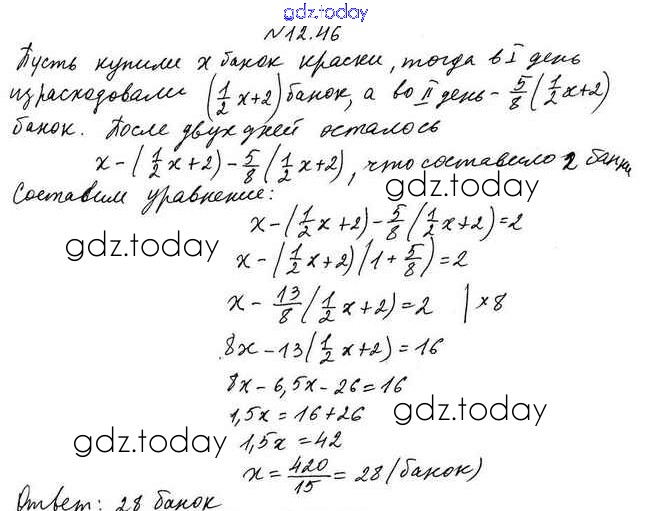 gdz.today
№12.46
Пусть купили x банок краски, тогда в I день
израсходовали (1/2 x+2) банок, а во II день - 5/8 (1/2 x+2)
банок. После двух дней осталось
x - (1/2 x+2) - 5/8 (1/2 x+2), что составило 2 банки
gdz.today
Составим уравнение:
x - (1/2 x+2) - 5/8 (1/2 x+2) = 2
gdz.today
x - (1/2 x+2)(1 + 5/8) = 2
x - 13/8 (1/2 x+2) = 2 | ×8
8x - 13(1/2 x+2) = 16
8x - 6,5x - 26 = 16
1,5x = 16+26
gdz.today
1,5x = 42
gdz.today
x = 420/15 = 28 (банок)
Ответ: 28 банок